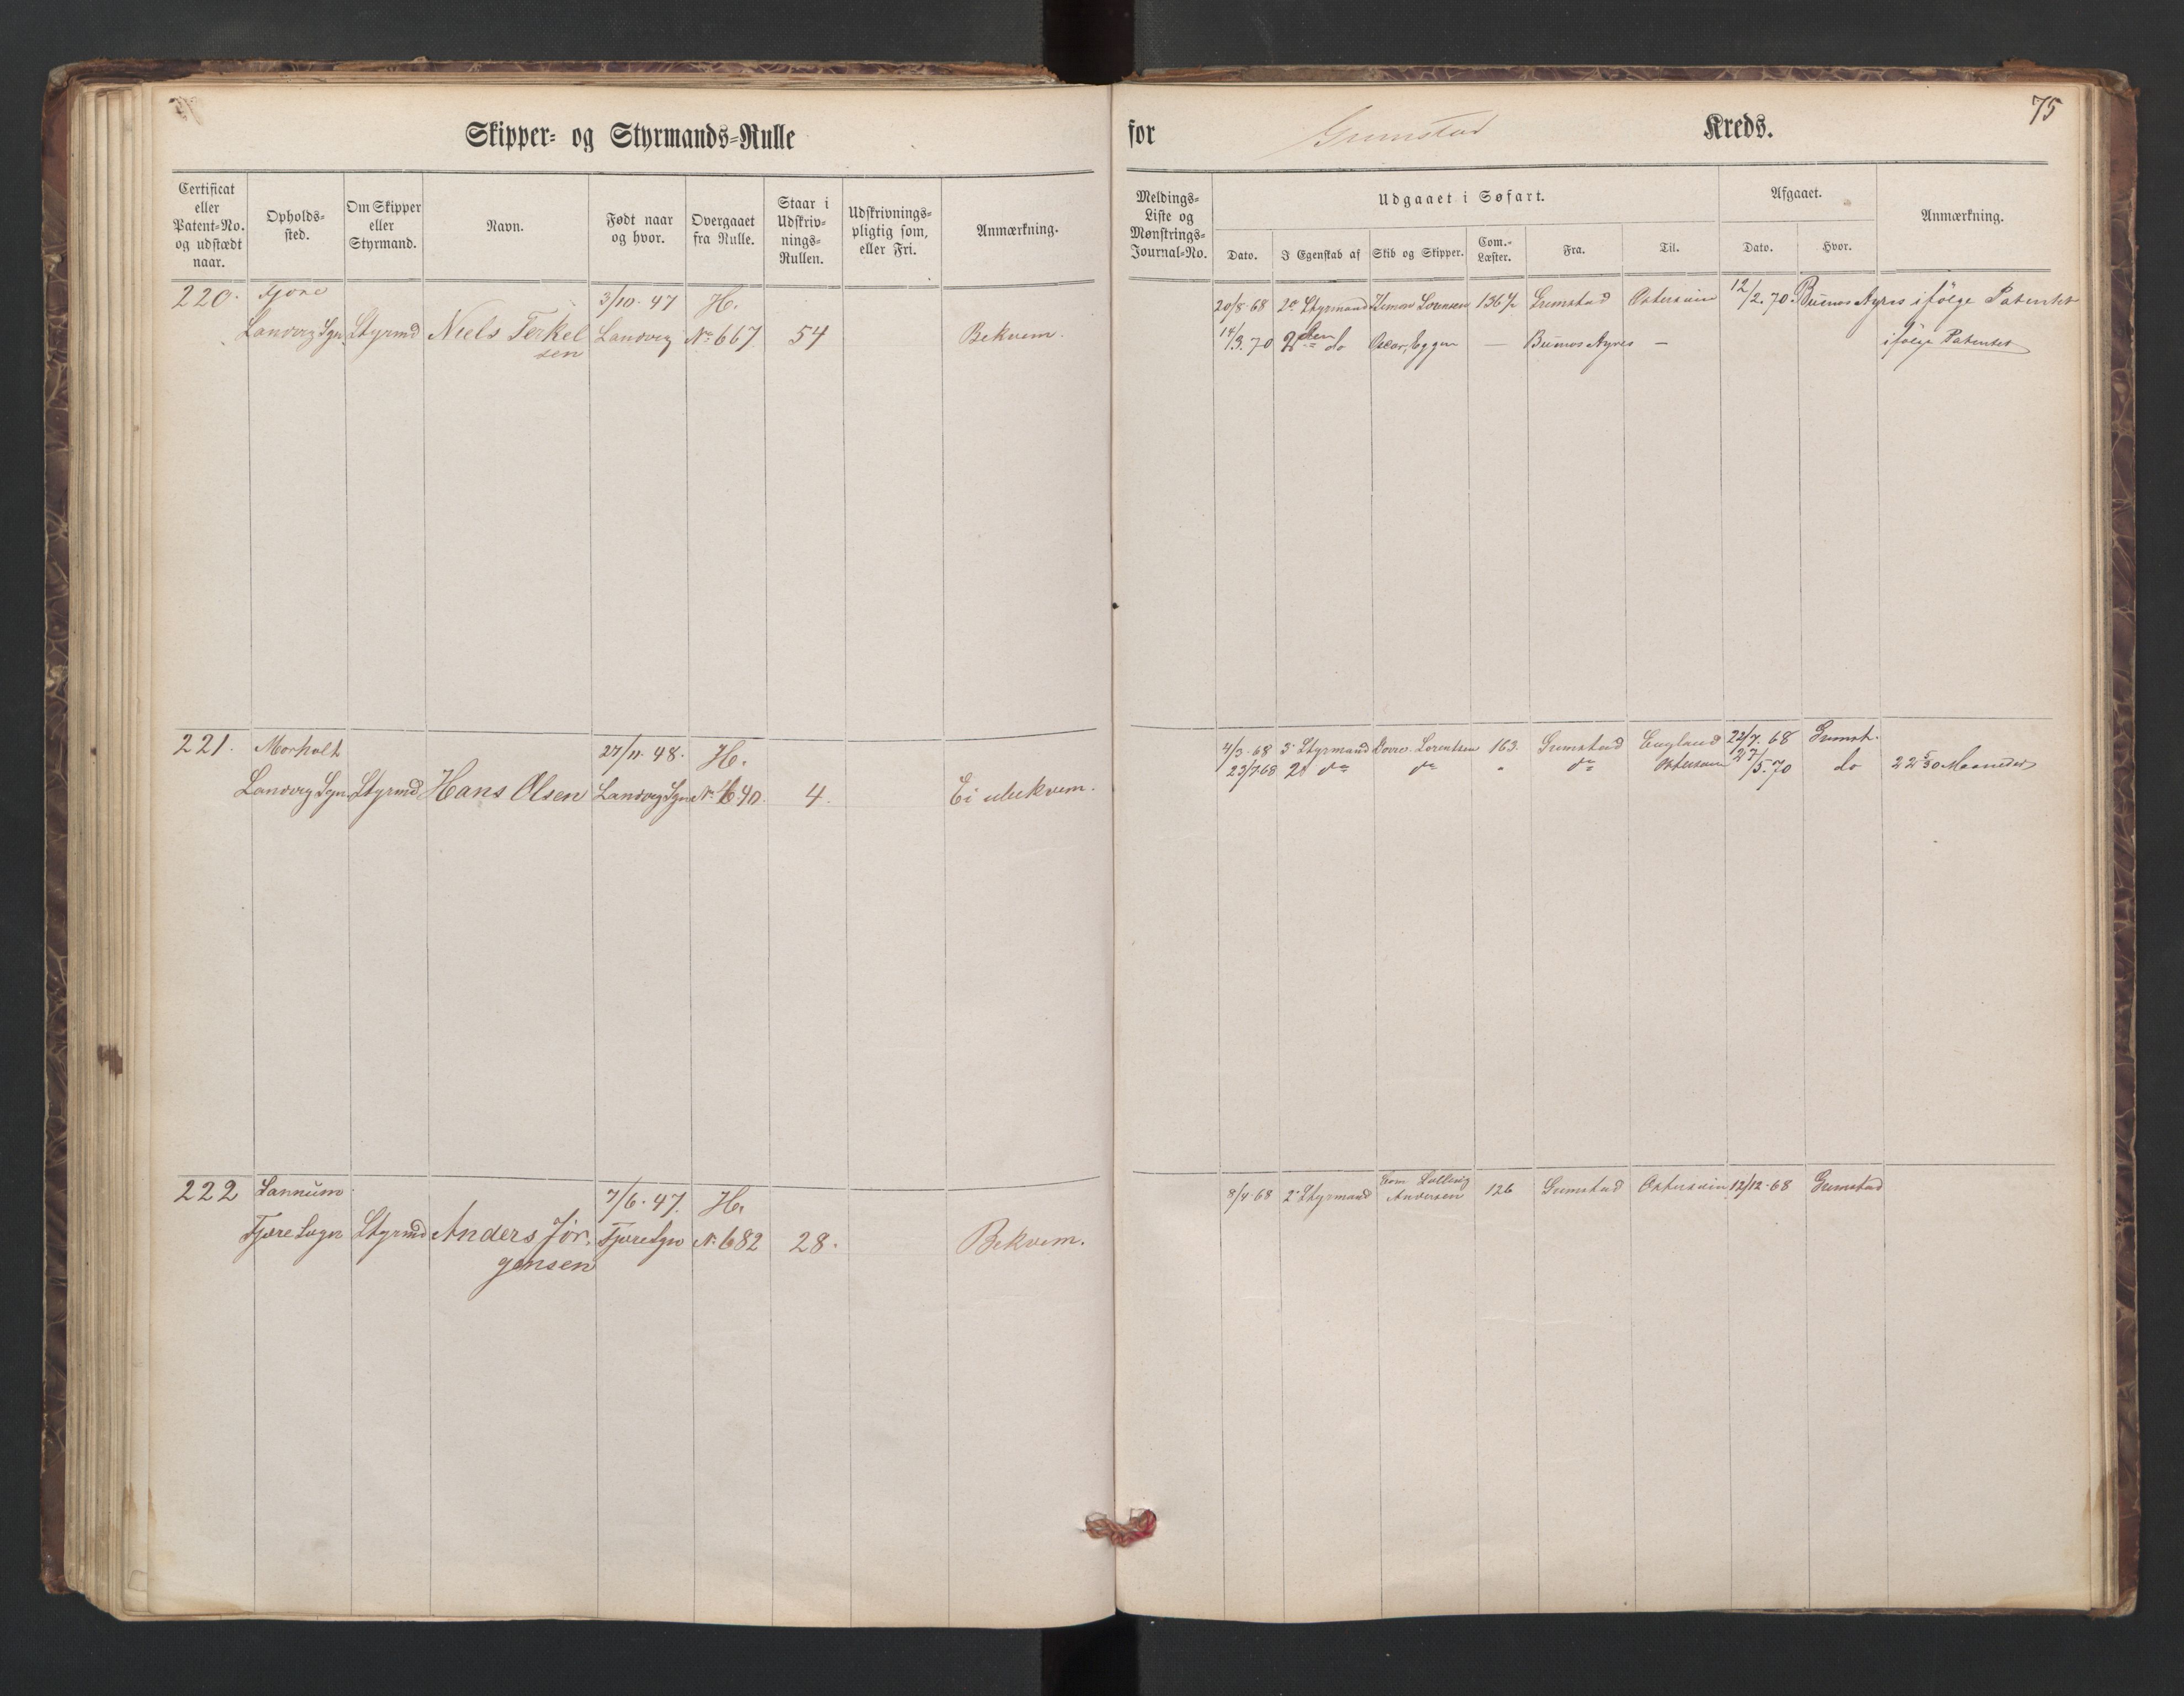 75
Skipper- og Styrmands-Rulle for Grimstad Kreds.
Certificat eller Patent-No. og udstædt naar.
Opholds-sted.
Om Skipper eller Styrmand.
Navn.
Født naar og hvor.
Overgaaet fra Rulle.
Staar i Udskriv-nings-Rullen.
Udskrivnings-pligtig som, eller Fri.
Anmærkning.
Meldings-Liste og Mønstrings-Journal-No.
Udgaaet i Søfart.
Dato.
I Egenskab af
Skib og Skipper.
Com.-Læster.
Fra.
Til.
Afgaaet.
Dato.
Hvor.
Anmærkning.
220. 3/10. 47 H.
Landvig Sgn. Styrmd Niels Terkel Landvig No 667 54 Bekvem.
sen
20/8. 68 2n Styrmand Lorensen 136½ Grimstad Østersøen 12/2. 70. Buenos Ayres ifølge Patentet
14/3. 70 2den do Oscar, Eggen — Buenos Ayres — ifølge Patentet
221. Morholt 27/11. 48. H.
Landvig Sgn. Styrmd Hans Olsen Landvig Sgn No 640. 4. Ei ubekvem.
4/3. 68 Styrmand Lorentsen 163. Grimstad England 22/7. 68 Grimst.
23/7 68 2n do do " do Østersøen 27/5. 70 do 22 5/30 Maaneder
222 7/6. 47. H.
Fjære Sogn Styrmd Anders Jør- Fjære Sgn No 682 28. Bekvem.
gensen
8/4. 68 2n Styrmand Andersen 126 Grimstad Østersøen 12/12. 68 Grimstad